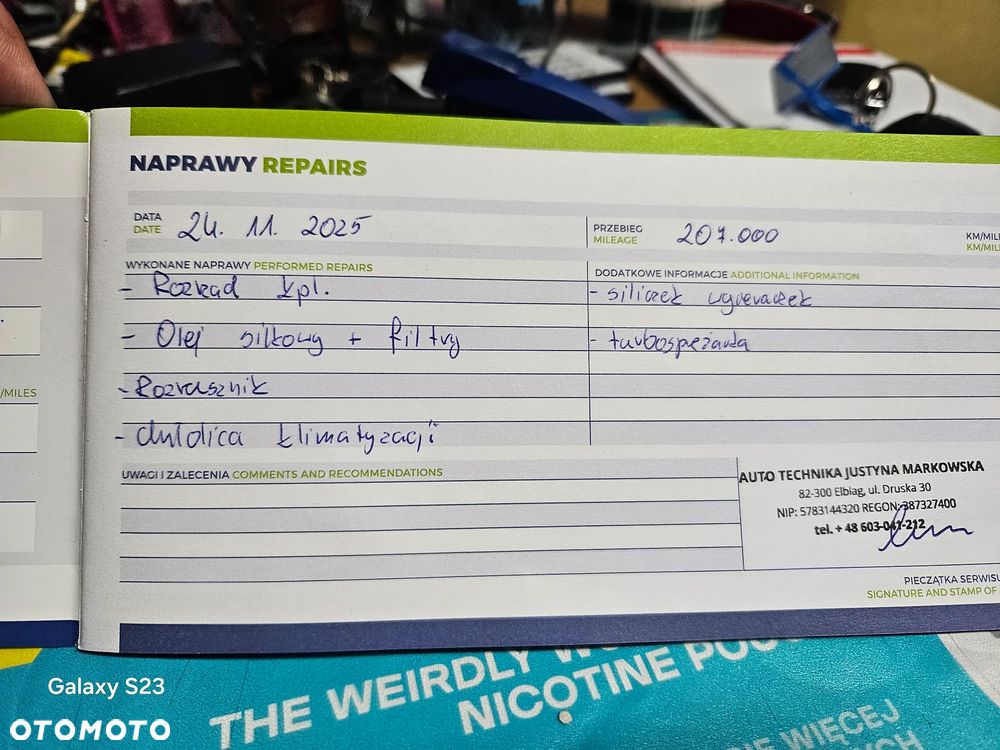 NAPRAWY REPAIRS
DATA
DATE
24. 11. 2025
PRZEBIEG
MILEAGE
207.000
KM/MILE
KM/MILE
WYKONANE NAPRAWY PERFORMED REPAIRS
- Rozrząd kpl.
- Olej silkowy + filtry
- Rozrusznik
- chłodnica klimatyzacji
DODATKOWE INFORMACJE ADDITIONAL INFORMATION
- silniczek
- turbosprężarka
/MILES
UWAGI I ZALECENIA COMMENTS AND RECOMMENDATIONS
AUTO TECHNIKA JUSTYNA MARKOWSKA
82-300 Elbląg, ul. Druska 30
NIP: 5783144320 REGON: 387327400
tel. + 48 603-041-212
PIECZĄTKA SERWISU
SIGNATURE AND STAMP OF
THE WEIRDLY
NICOTINE
WIĘCEJ
Galaxy S23
OTOMOTO